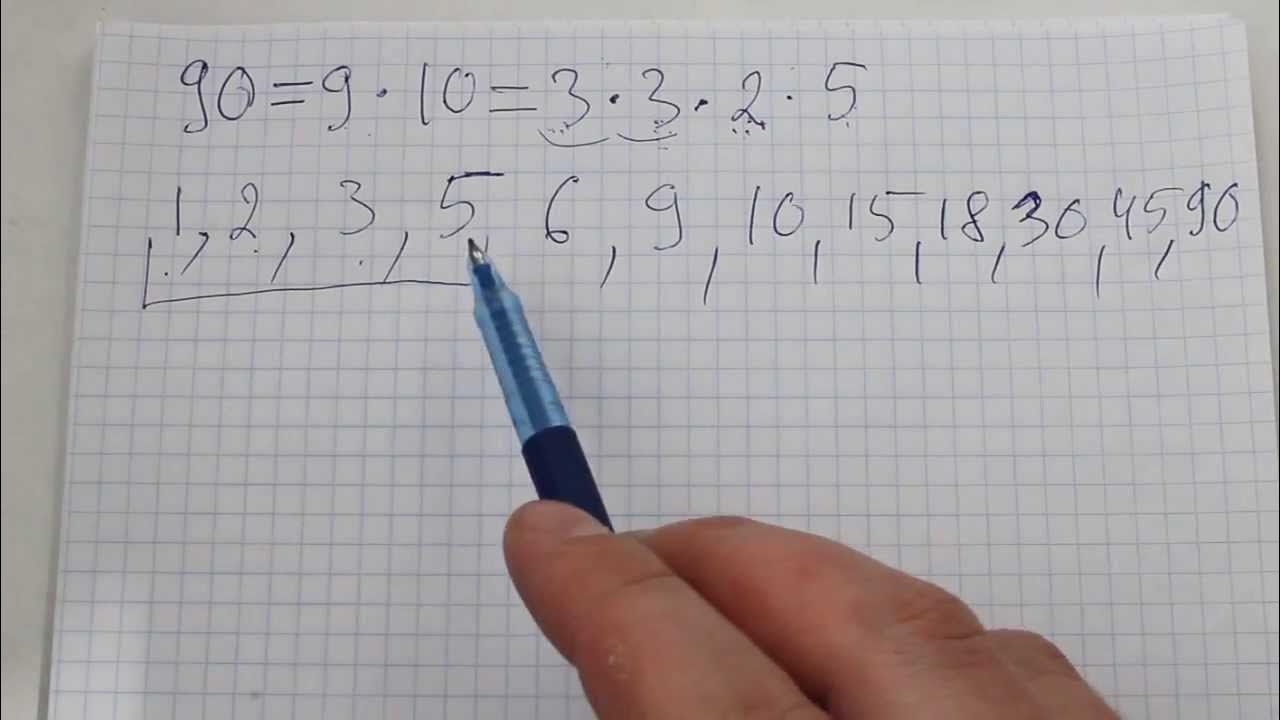 90=9·10=3·3·2·5
1, 2, 3, 5, 6, 9, 10, 15, 18, 30, 45, 90